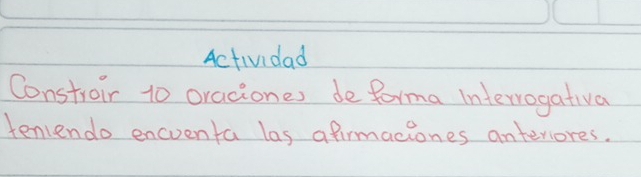 Actividad
Constroir 10 oraciones de forma interrogativa
teniendo encuenta las afirmaciones anteriores.